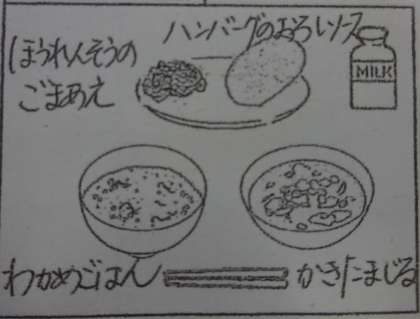 ハンバーグのおろしソース
ほうれんそうの
ごまあえ
MILK
わかめごはん
かきたまじる